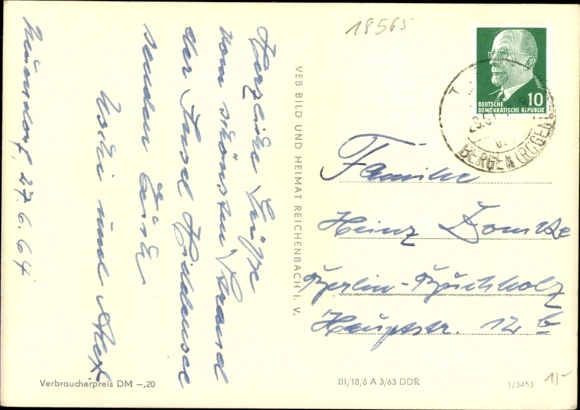 Neuendorf, 27.6.64
Herzliche Grüße
vom schönsten Strand
der Insel Hiddensee
senden Euch
und
18565
DEUTSCHE
DEMOKRATISCHE REPUBLIK
10
BERGEN (RÜGEN)
VEB BILD UND HEIMAT REICHENBACH I. V.
Familie
Heinz
Berlin-Buchholz
Hauptstr. 12 b
Verbraucherpreis DM –,20
III/18/6 A 3/63 DDR
1/3453
1/-